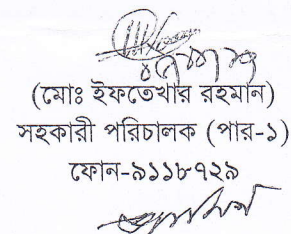 (মোঃ ইফতেখার রহমান)
সহকারী পরিচালক (পার-১)
ফোন-৯১১৮৭২৯